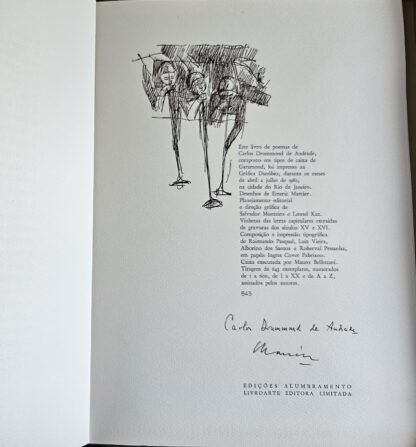 Este livro de poemas de
Carlos Drummond de Andrade,
composto em tipos de caixa de
Garamond, foi impresso na
Gráfica Danúbio, durante os meses
de abril a julho de 1982,
na cidade do Rio de Janeiro.
Desenhos de Emeric Marcier.
Planejamento editorial
e direção gráfica de
Salvador Monteiro e Leonel Kaz.
Vinhetas das letras capitulares extraídas
de gravuras dos séculos XV e XVI.
Composição e impressão tipográfica
de Raimundo Pasqual, Luiz Vieira,
Alborino dos Santos e Roberval Pessanha,
em papéis Ingres Cover Fabriano.
Caixa executada por Mauro Bellonzani.
Tiragem de 643 exemplares, numerados
de 1 a 600, de I a XX e de A a Z,
assinados pelos autores.
Carlos Drummond de Andrade
Marcier
EDIÇÕES ALUMBRAMENTO
LIVROARTE EDITORA LIMITADA